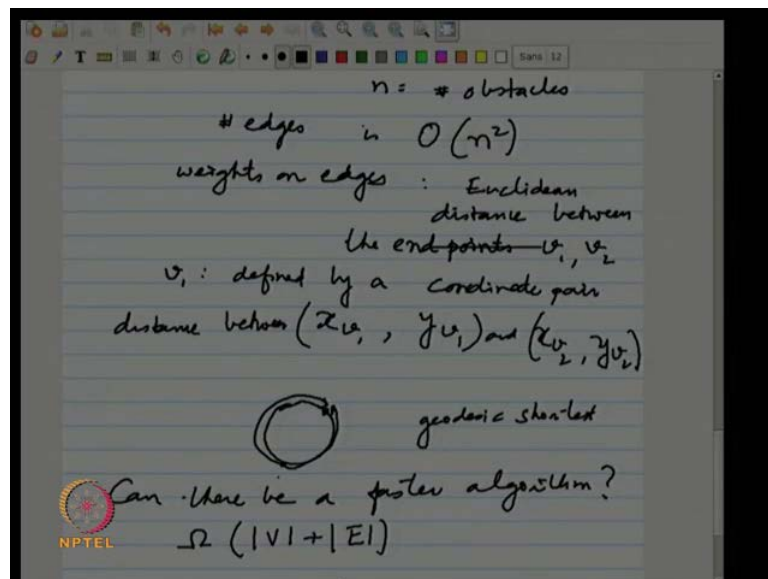 Sans 12
n = # obstacles
# edges is O(n²)
weights on edges : Euclidean
distance between
the end points v₁, v₂
v₁ : defined by a coordinate pair
distance between (x_{v₁}, y_{v₁}) and (x_{v₂}, y_{v₂})
geodesic shortest
Can there be a faster algorithm?
Ω (|V| + |E|)
NPTEL